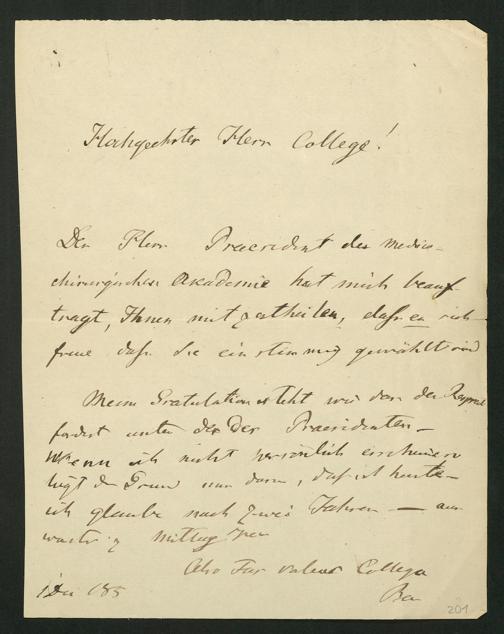 Hochgeehrter Herr College!
Der Herr Praesident der medico-
chirurgischen Akademie hat mich beauf-
tragt, Ihnen mitzutheilen, dass er sich
freue dass Sie einstimmig gewählt sind
Meine Gratulation steht wie der
fordert unter der Der Praesidenten –
Wenn ich nicht persönlich erscheine
liegt der Grund nur darin, dass ich heute –
ich glaube nach zwei Jahren — aus
wärts zu Mittag
Also Collega
201